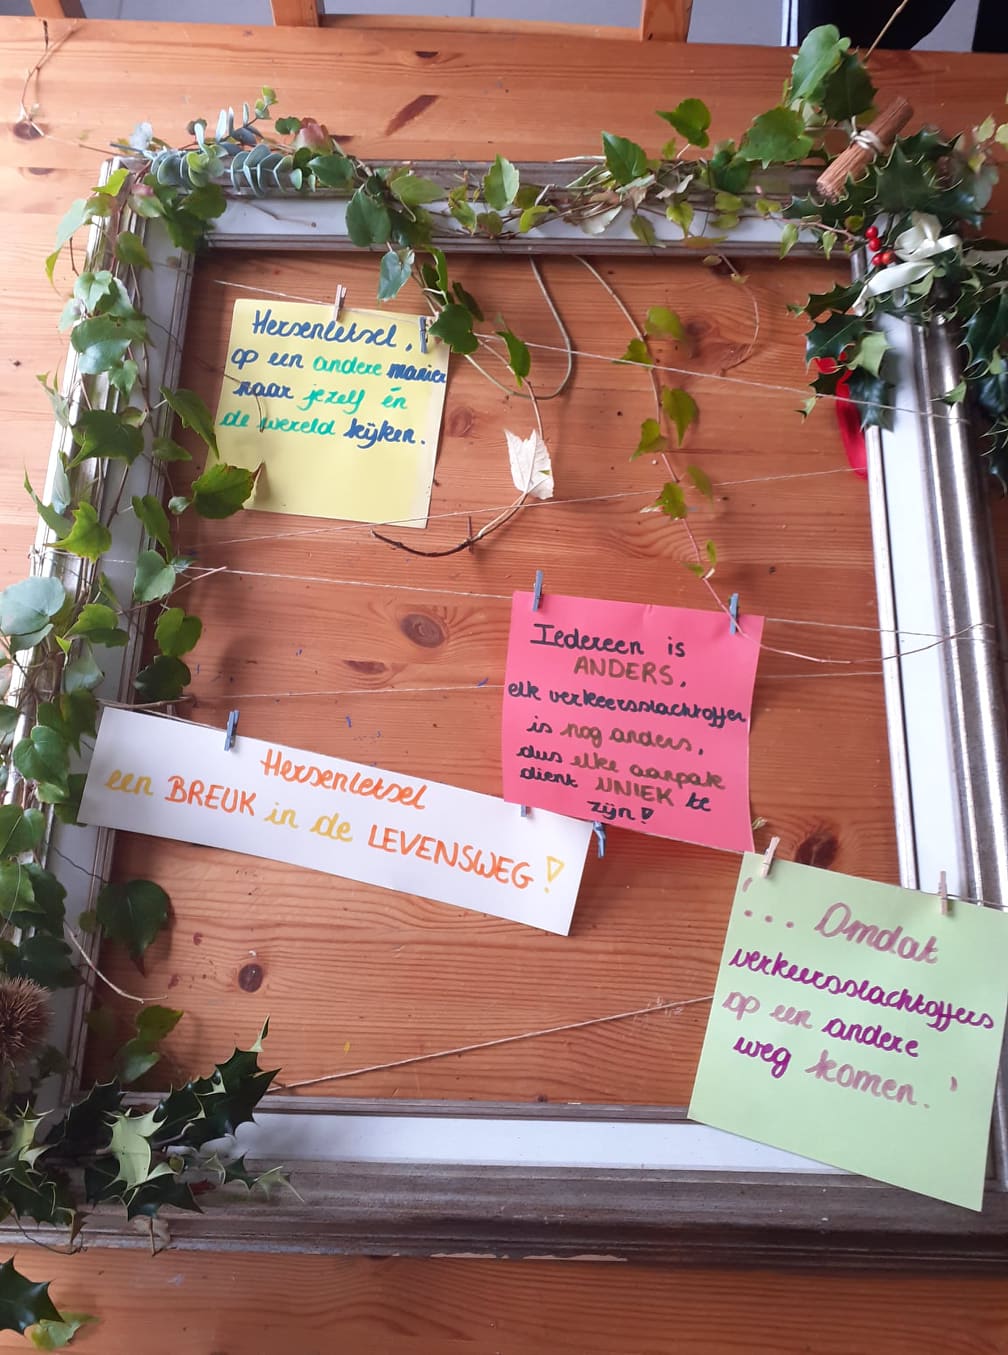 Hersenletsel,
op een andere manier
naar jezelf én
de wereld kijken.
Iedereen is
ANDERS,
elk verkeersslachtoffer
is nog anders,
dus elke aanpak
dient UNIEK te
zijn!
Hersenletsel
een BREUK in de LEVENSWEG!
'... Omdat
verkeersslachtoffers
op een andere
weg komen.'